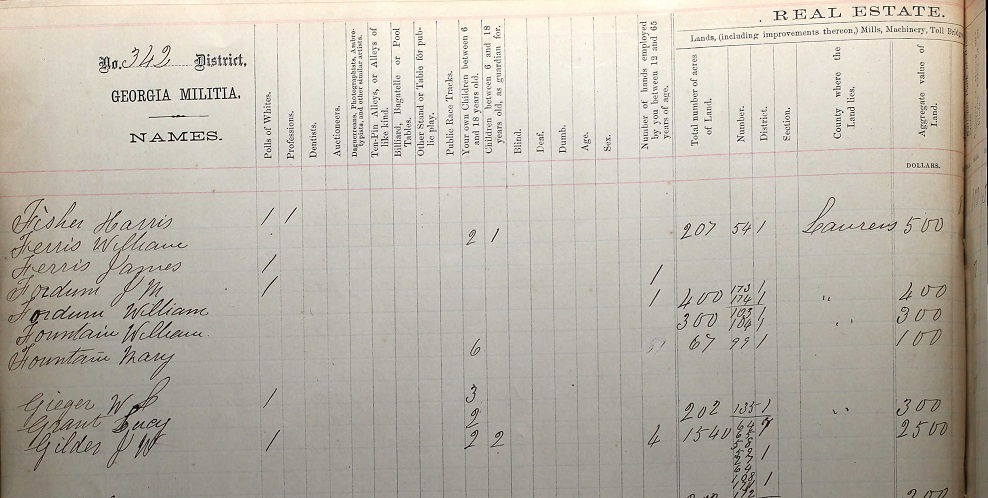 REAL ESTATE.
Lands, (including improvements thereon,) Mills, Machinery, Toll
No. 342 District,
GEORGIA MILITIA.
NAMES.
Polls of Whites.
Professions.
Dentists.
Auctioneers.
Daguerrean, Photographists, Ambrotypists, and other similar artists.
Ten-Pin Alleys, or Alleys of like kind.
Billiard, Bagatelle or Pool Tables.
Other Stand or Table for public play.
Public Race Tracks.
Your own Children between 6 and 18 years old.
Children between 6 and 18 years old, as guardian for.
Blind.
Deaf.
Dumb.
Age.
Sex.
Number of hands employed by you between 12 and 65 years of age.
Total number of acres of Land.
Number.
District.
Section.
County where the Land lies.
Aggregate value of Land.
DOLLARS.
Fisher Harris 1 1 207 54 1 Laurens 500
Ferris William 2 1
Ferris James 1 1
Fordum J M 1 1 400 173 174 1 1 " 400
Fordum William 300 103 104 1 1 " 300
Fountain William. 67 99 1 100
Fountain Mary 6
Gieger W 1 3 202 135 1 " 300
Grant Lucy 2 1540 64 7 2500
Gilder J W 1 2 2 4